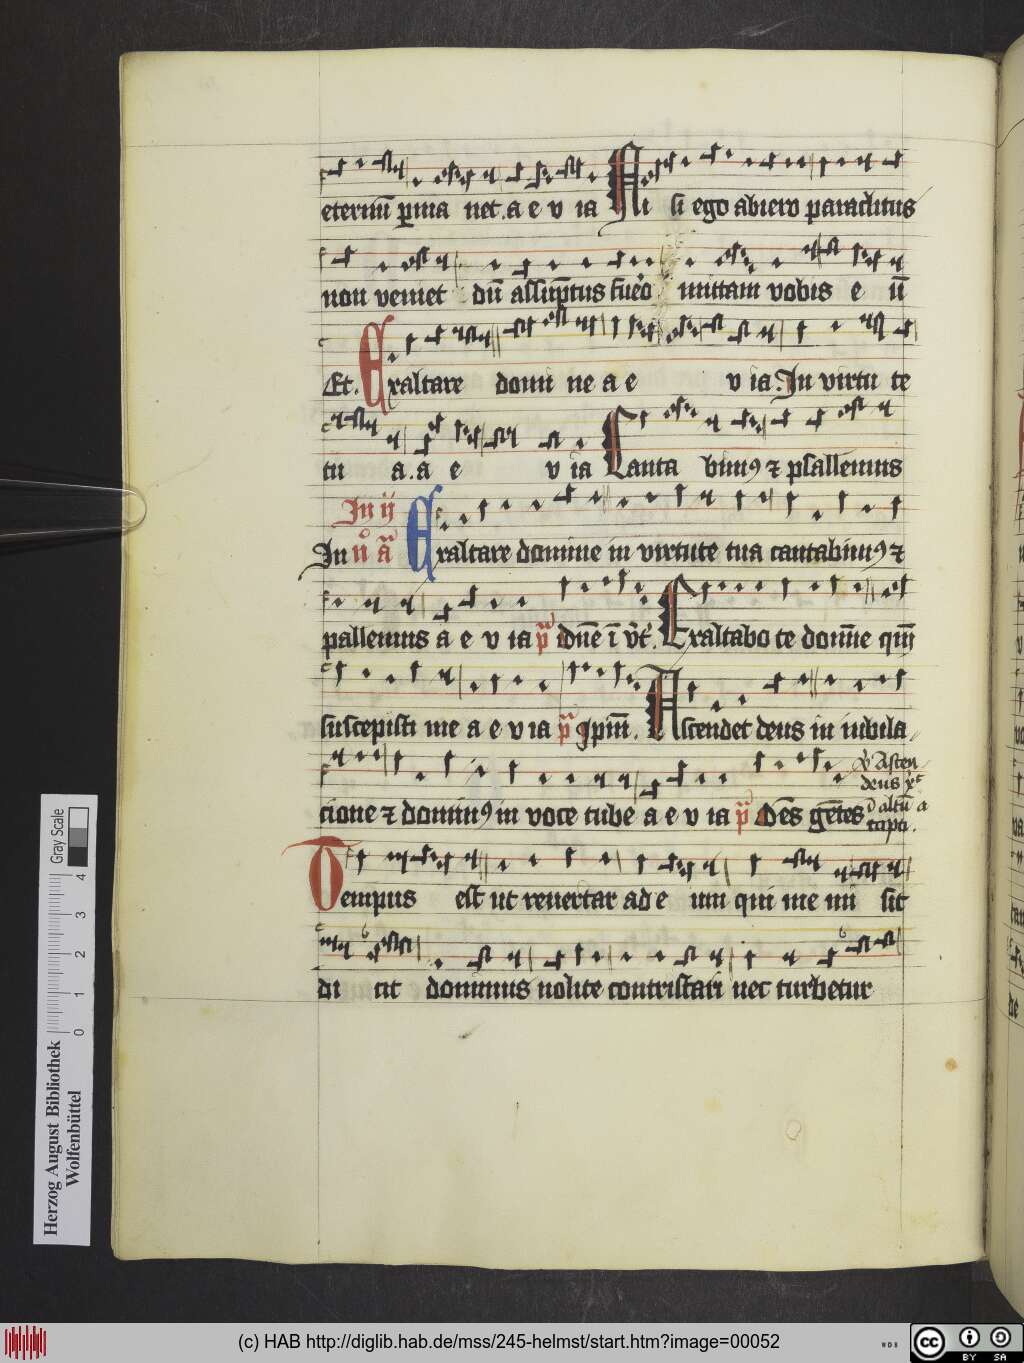 eternū ꝑma net . a e v ia Ni si ego abiero paraclitus
non veniet dū assūptus fuēo mittam vobis e ū
Et . Exaltare domi ne a e v ia . In virtu te
tu a . a e v ia Canta bimꝰ ⁊ psallemus
In ij
In n̊ ā Exaltare domine in virtute tua cantabimꝰ ⁊
psallemus a e v ia p̄ Exaltabo te domīe qm̄
suscepisti me a e v ia p̄ Ascendet deus in iubila
Ꝟ Ascen
deus xᵗ
cione ⁊ dominꝰ in voce tube a e v ia p̄ Oēs gētes
ī altū a
capti .
Tempus est ut reuertar ad e um qui me mi sit
di cit dominus nolite contristari nec turbetur
Herzog August Bibliothek
Wolfenbüttel
Gray Scale
0 1 2 3 4
(c) HAB http://diglib.hab.de/mss/245-helmst/start.htm?image=00052
WDB
cc BY SA